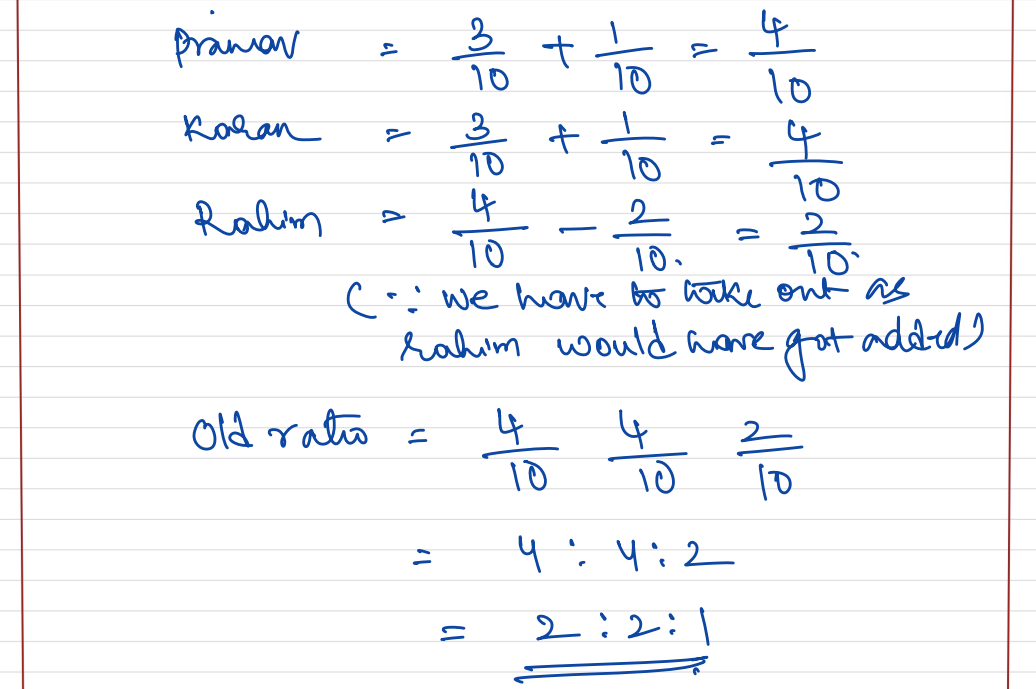 Pranav = 3/10 + 1/10 = 4/10
Karan = 3/10 + 1/10 = 4/10
Rahim = 4/10 - 2/10. = 2/10.
(∵ we have to take out as
rahim would have got added)
Old ratio = 4/10 4/10 2/10
= 4 : 4 : 2
= 2 : 2 : 1